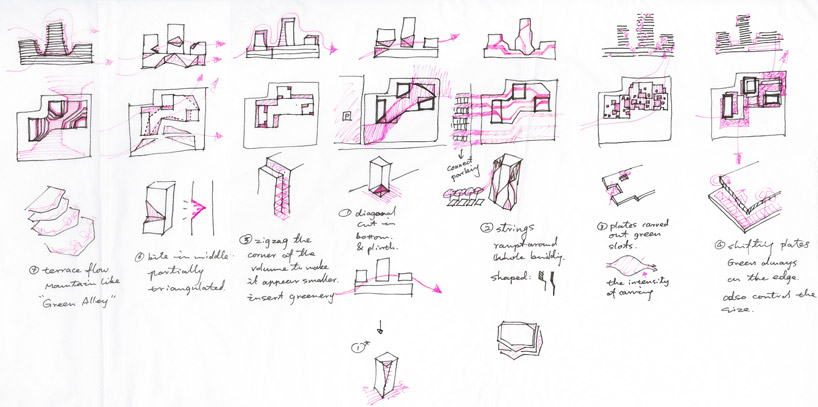 P
connect
parking
① diagonal
cut in
bottom.
& plinth.
② strings
wrapt around
whole building.
shaped:
③ plates carved
out green
slots.
the intensity
of carving
④ shifting plates
Green always
on the edge.
also control the
size.
⑤ zigzag the
corner of the
volume to make
it appear smaller.
insert greenery
⑥ bite in middle.
partially
triangulated.
⑦ terrace flow
mountain like
"Green Alley"
①*